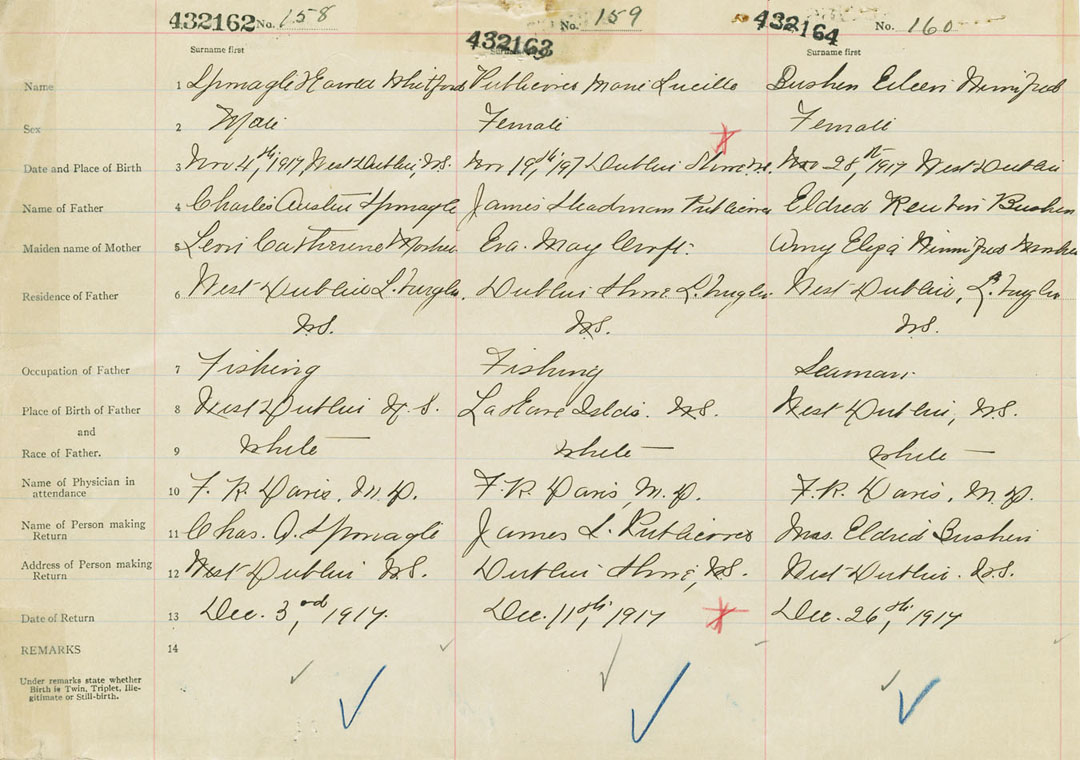 432162 No. 158
432163 No. 159
432164 No. 160
Surname first Surname first Surname first
Name 1 Spinagle Publicover Marie Lucille Bushen Eileen Winnifred
Sex 2 Male Female Female
Date and Place of Birth 3 Nov. 4th, 1917, West Dublin, N.S. Nov 19th, 197 Dublin Shore N.S. Nov 28th, 1917 West Dublin
Name of Father 4 Charles Austin Spinagle James Steadman Publicover Eldred Reuben Bushen
Maiden name of Mother 5 Catherine Eva. May Croft. Amy Eliza Winnifred
Residence of Father 6 West Dublin Dublin Shore West Dublin,
N.S. N.S. N.S.
Occupation of Father 7 Fishing Fishing Seaman.
Place of Birth of Father 8 West Dublin N.S. LaHave Islds. N.S. West Dublin, N.S.
and
Race of Father. 9 White White White
Name of Physician in
attendance 10 F. R. Davis, M.D. F. R. Davis, M.D. F. R. Davis, M.D.
Name of Person making
Return 11 Chas. A. Spinagle James S. Publicover Mrs. Eldred Bushen
Address of Person making
Return 12 West Dublin N.S. Dublin Shore, N.S. West Dublin. N.S.
Date of Return 13 Dec. 3rd, 1917. Dec. 11th, 1917 Dec. 26th, 1917
REMARKS 14
Under remarks state whether
Birth is Twin, Triplet, Ille-
gitimate or Still-birth.